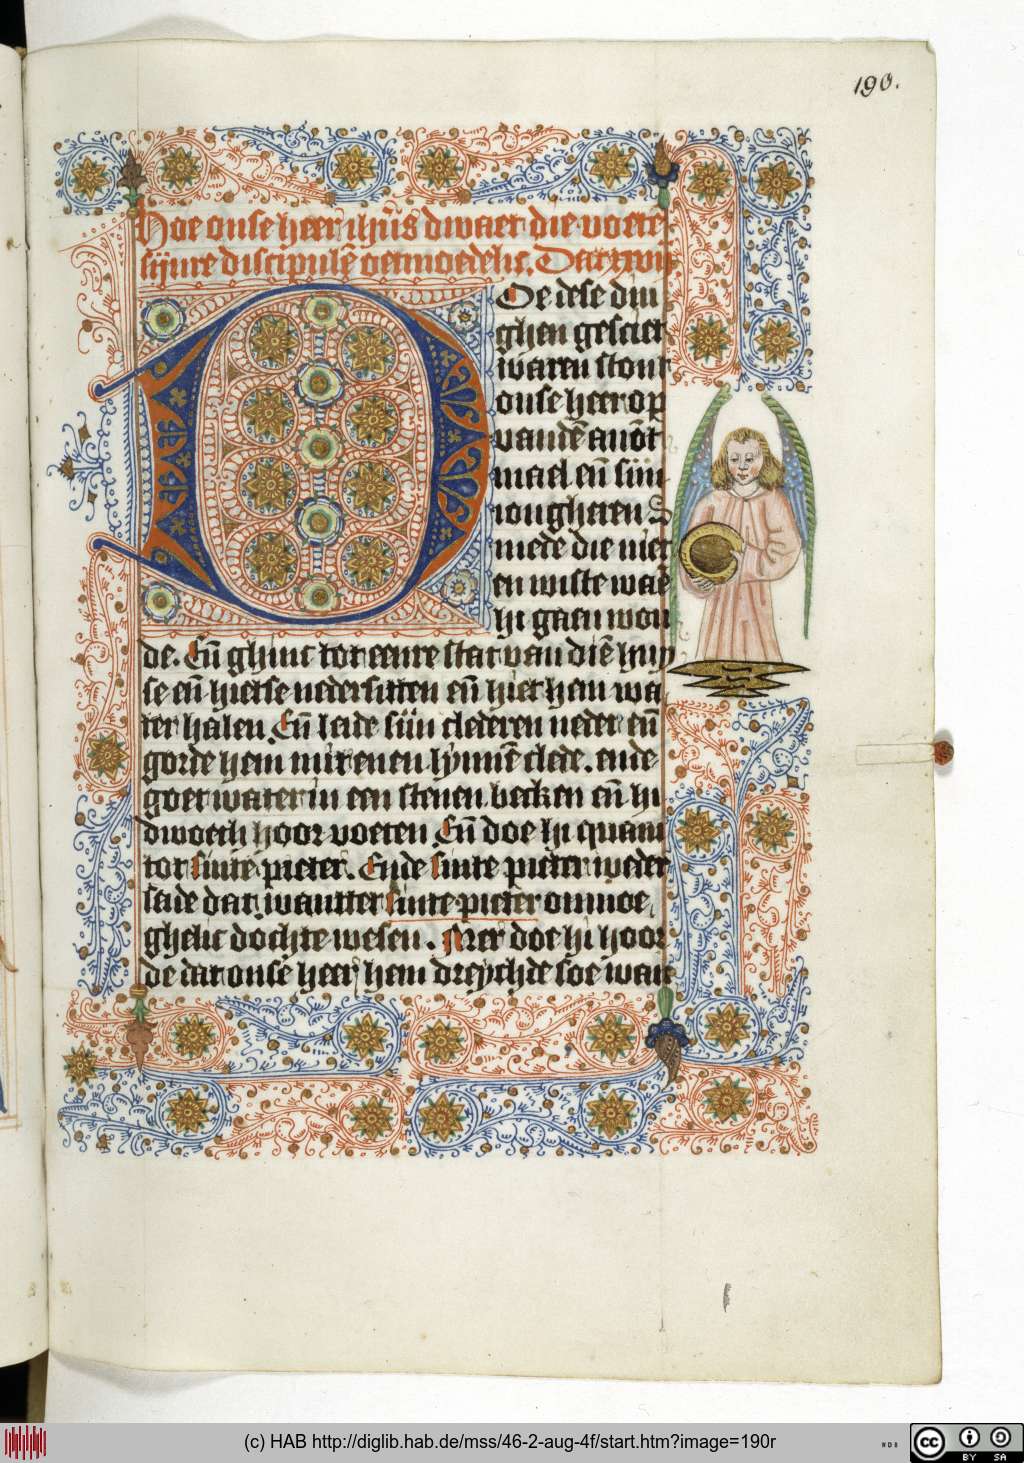 190.
Hoe onse heer ihūs dwaet die voete
sijnre discipulē oetmoedelic. Dat xxvii
Oe dese din
ghen gesciet
waren stont
onse heer op
vandē auōt
mael eñ sijn
iongheren
mede die niet
en wiste waē
hi gaen wou
de. Eñ ghinc tot eenre stat van diē huy
se eñ hietse nedersitten eñ hiet hem wa
ter halen. Eñ leide sijn clederen neder eñ
gorde hem mit enen lynnē clede. ende
goet water in een stenen becken eñ hi
dwoech hoor voeten. Eñ doe hi quam
tot sinte pieter. Ende sinte pieter weder
sade dat. want ter sinte pieter onmoe
ghelic dochte wesen. Mer doe hi hoor
de dat onse heer hem dreychde soe wart
(c) HAB http://diglib.hab.de/mss/46-2-aug-4f/start.htm?image=190r
WDB
cc
BY SA